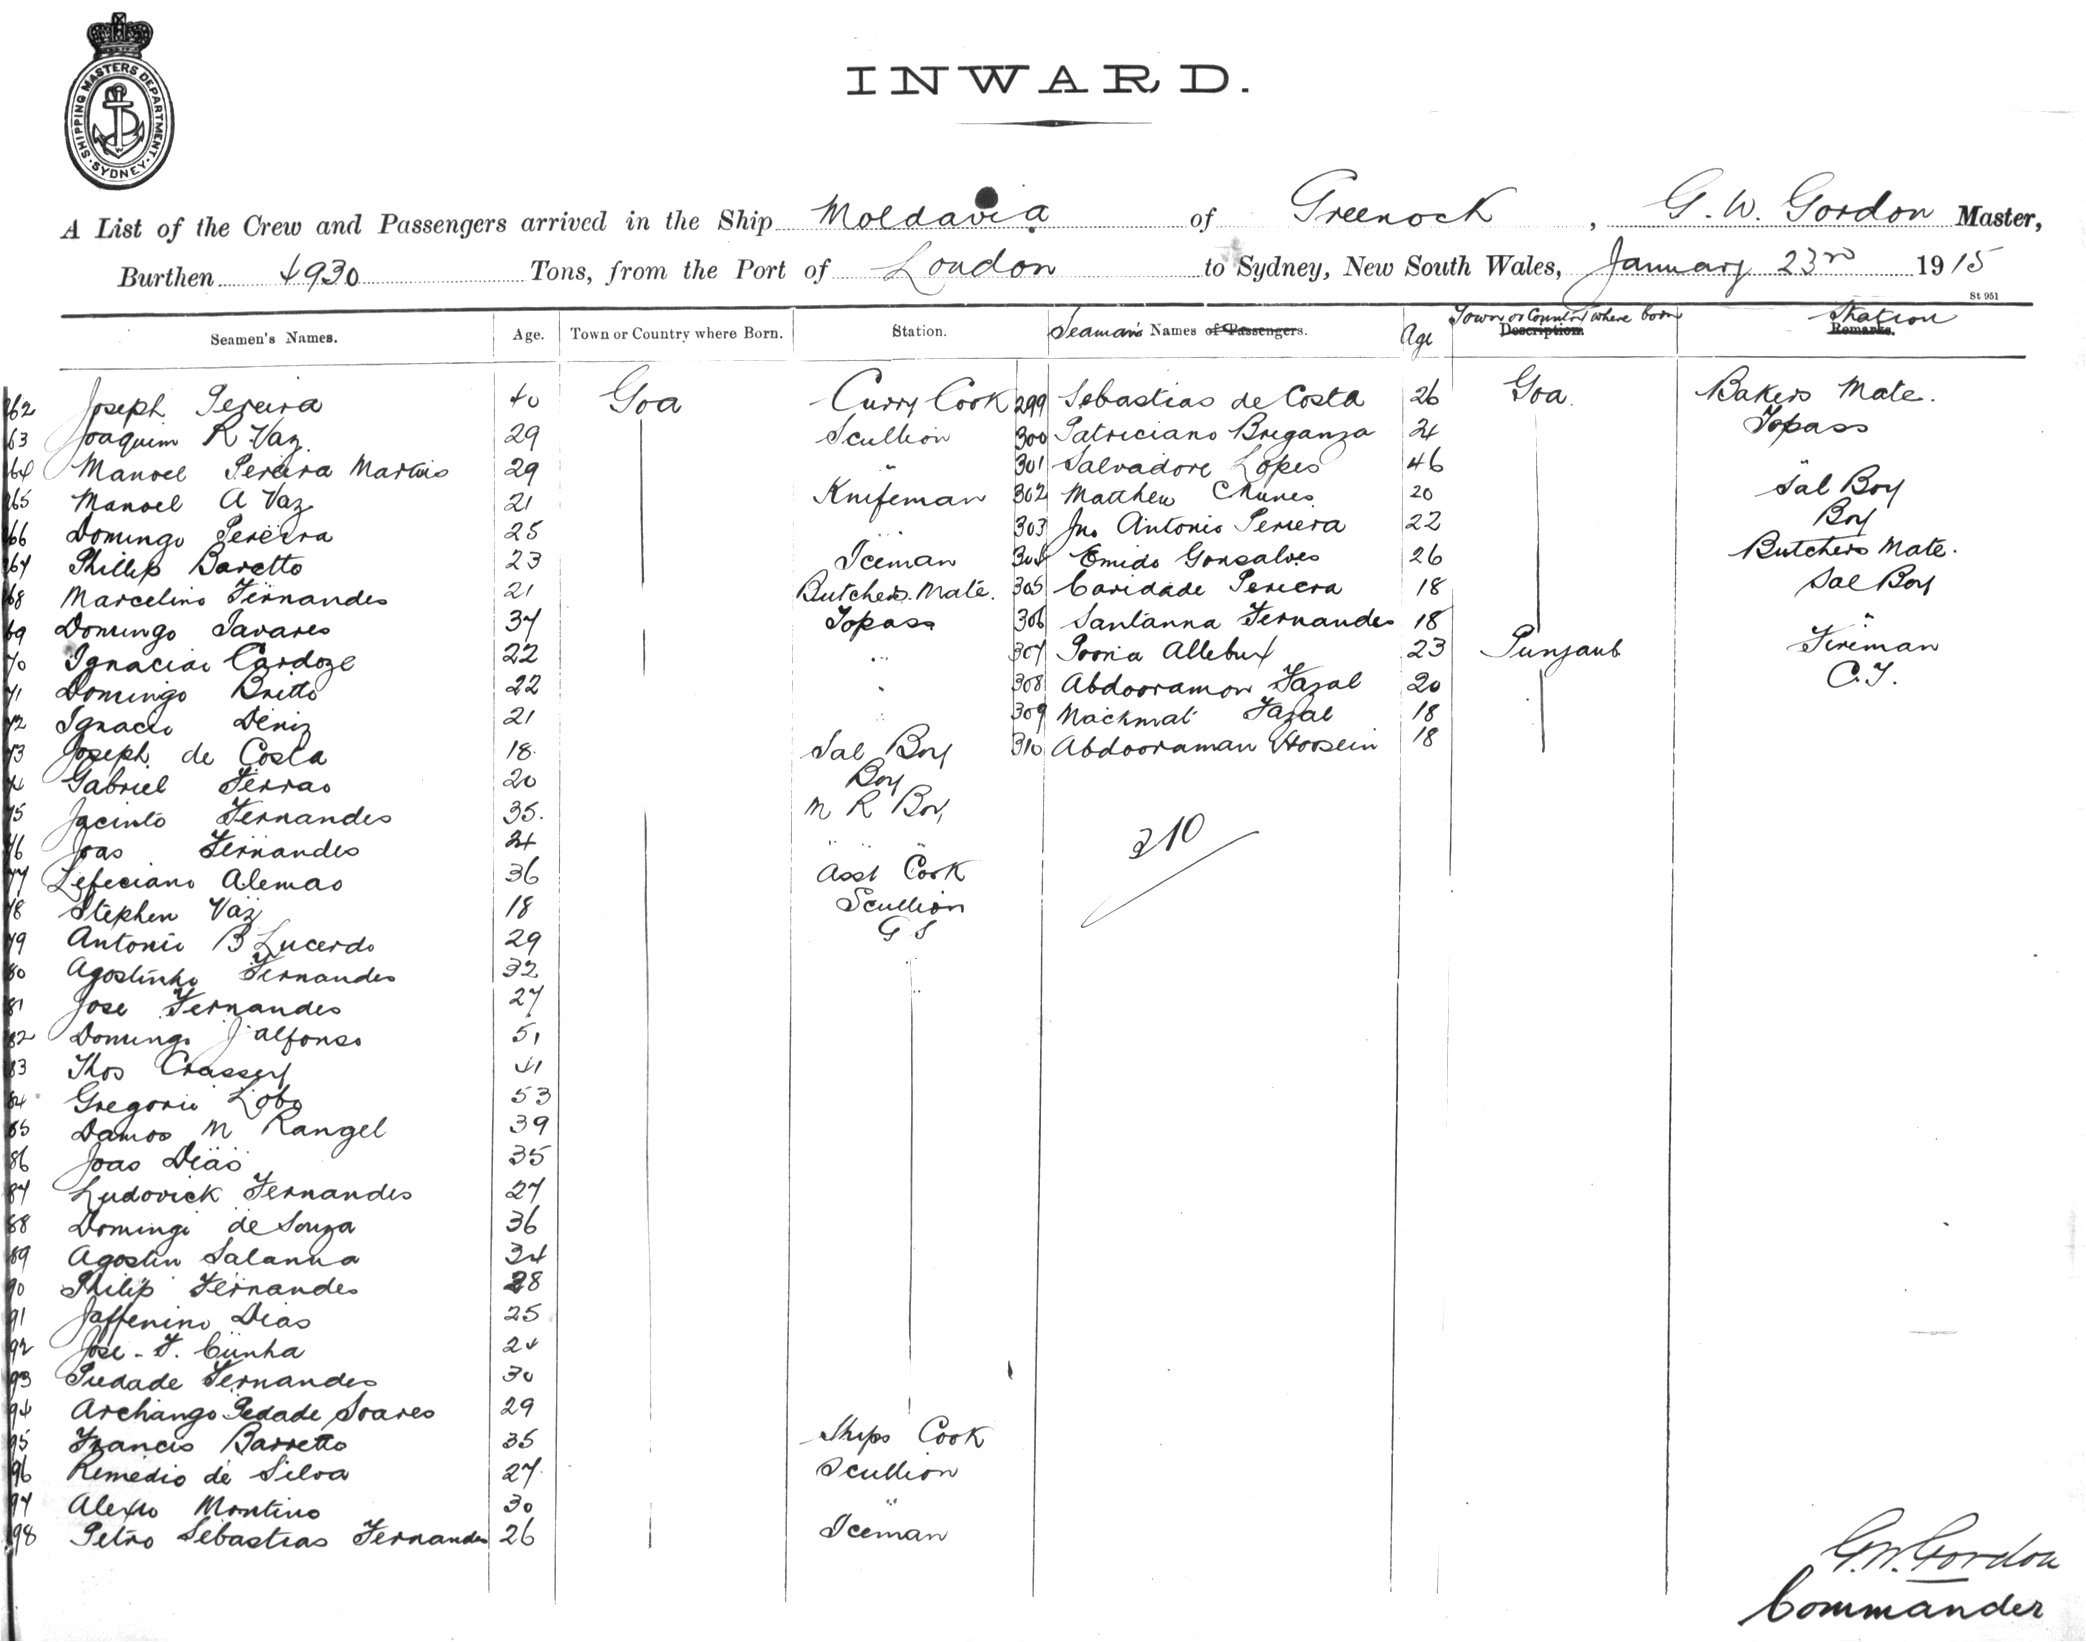 SHIPPING MASTERS DEPARTMENT · SYDNEY ·
INWARD.
A List of the Crew and Passengers arrived in the Ship Moldavia of Greenock, G. W. Gordon Master,
Burthen 4930 Tons, from the Port of London to Sydney, New South Wales, January 23rd 1915
St 951
Seamen's Names. Age. Town or Country where Born. Station. Seaman's Names of Passengers. Age Town or Country where born Description. Station Remarks.
262 Joseph Pereira 40 Goa Curry Cook 299 Sebastias de Costa 26 Goa. Bakers Mate.
63 Joaquim R Vaz 29 Scullion 300 Patriciano Breganza 24 Topass
64 Manoel Pereira Martins 29 " 301 Salvadore Lopes 46 "
265 Manoel A Vaz 21 Knifeman 302 Matthew Nunes 20 Sal Boy
66 Domingo Pereira 25 " 303 Jno Antonio Periera 22 Boy
67 Phillip Baretto 23 Iceman 304 Emido Gonsalves 26 Butchers Mate.
68 Marcelino Fernandes 21 Butchers Mate. 305 Caridade Periera 18 Sal Boy
69 Domingo Tavares 37 Topass 306 Santanna Fernandes 18 "
70 Ignaciai Cardoze 22 " 307 Poona Allebux 23 Punjaub Fireman
71 Domingo Britto 22 " 308 Abdooramon Fazal 20 C.T.
72 Ignacio Deniz 21 " 309 Nachmat Fazal 18
73 Joseph de Costa 18 Sal Boy 310 Abdooraman Hoosein 18
74 Gabriel Ferrao 20 Boy
75 Jacinto Fernandes 35. M R Boy
76 Joas Fernandes 24 " " "
310
77 Leficiano Alemao 36 Asst Cook
78 Stephen Vaz 18 Scullion
79 Antonio B Lucerdo 29 G S
80 Agostinho Fernandes 32 "
81 Jose Fernandes 27 "
82 Domingo J Alfonso 51
83 Thos Crasserf 41
84 Gregorio Lobo 53
85 Damos M Rangel 39
86 Joao Dias 35
87 Ludovick Fernandes 27
88 Domingi de Souza 36
89 Agostin Salanna 34
90 Philip Fernandes 28
91 Jaffenino Dias 25
92 Jose - F. Cunha 24
93 Piedade Fernandes 30
94 Archango Pedade Soares 29
95 Francis Barretto 35 Ships Cook
96 Remedio de Silva 27 Scullion
97 Alexio Montino 30 "
98 Petro Sebastias Fernandes 26 Iceman
G. W. Gordon
Commander